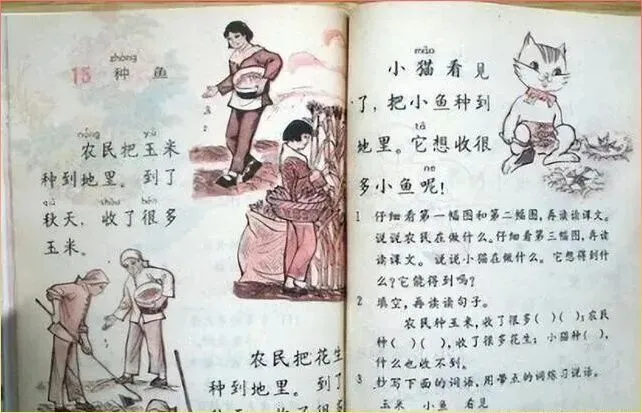 zhòng
15 种 鱼
nóng yù
农民把玉米
种到地里。到了
qiū shōu hěn
秋天,收了很多
玉米。
1
2
农民把花生
种到地里。到了
秋天 收了很多
māo
小猫看见
了,把小鱼种到
tā
地里。它想收很
ne
多小鱼呢!
1 仔细看第一幅图和第二幅图,再读读课文。
说说农民在做什么。仔细看第三幅图,再读
读课文。说说小猫在做什么。它想得到什
么?它能得到吗?
2 填空,再读读句子。
农民种玉米,收了很多( )( );农民
种( )( ),收了很多花生;小猫种( ),
什么也收不到。
3 抄写下面的词语,用带点的词练习说话。
玉米 小鱼 看见